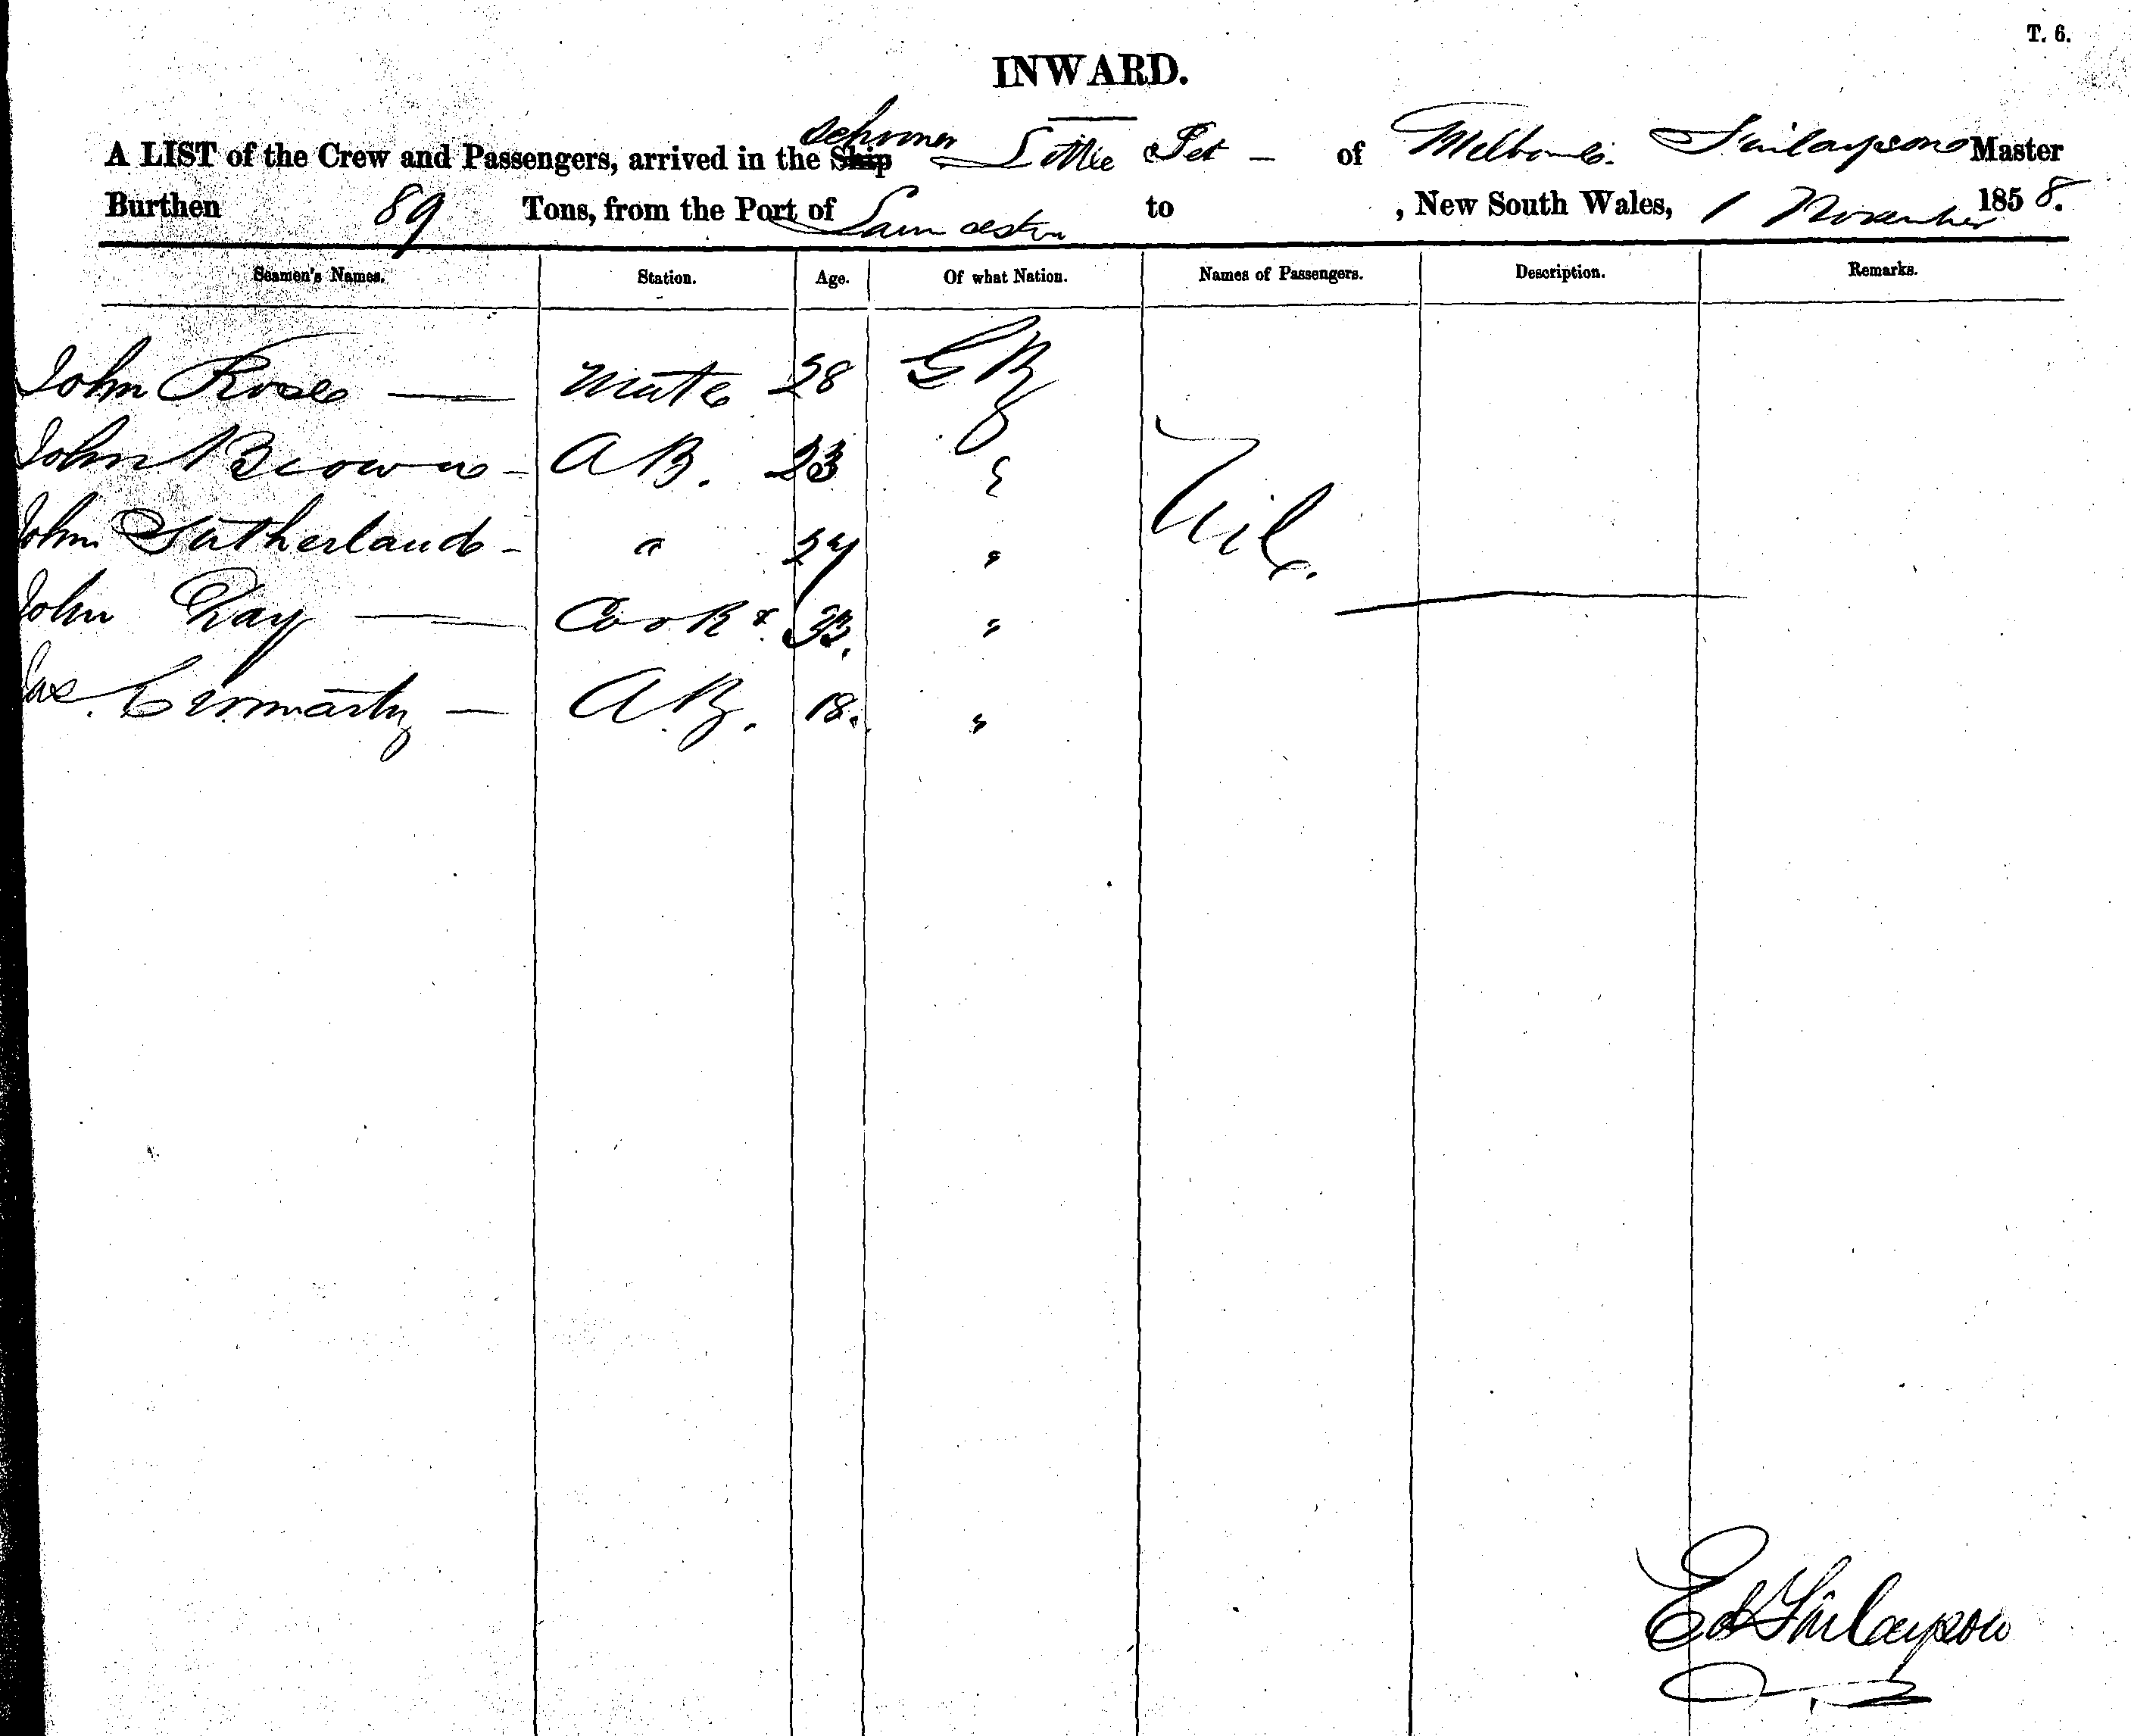 T. 6.
INWARD.
A LIST of the Crew and Passengers, arrived in the Ship Schooner Little Pet - of Melbourne. Finlayson Master
Burthen 89 Tons, from the Port of Launceston to , New South Wales, 1 November 1858.
Seamen's Names. Station. Age. Of what Nation. Names of Passengers. Description. Remarks.
John Rose — Mate 28 G B
John Brown - A B. 23 "
John Sutherland - " 27 " Nil.
John Kay — Cook &. 33. "
Jas. Cromarty — A B. 18. "
Ed Finlayson